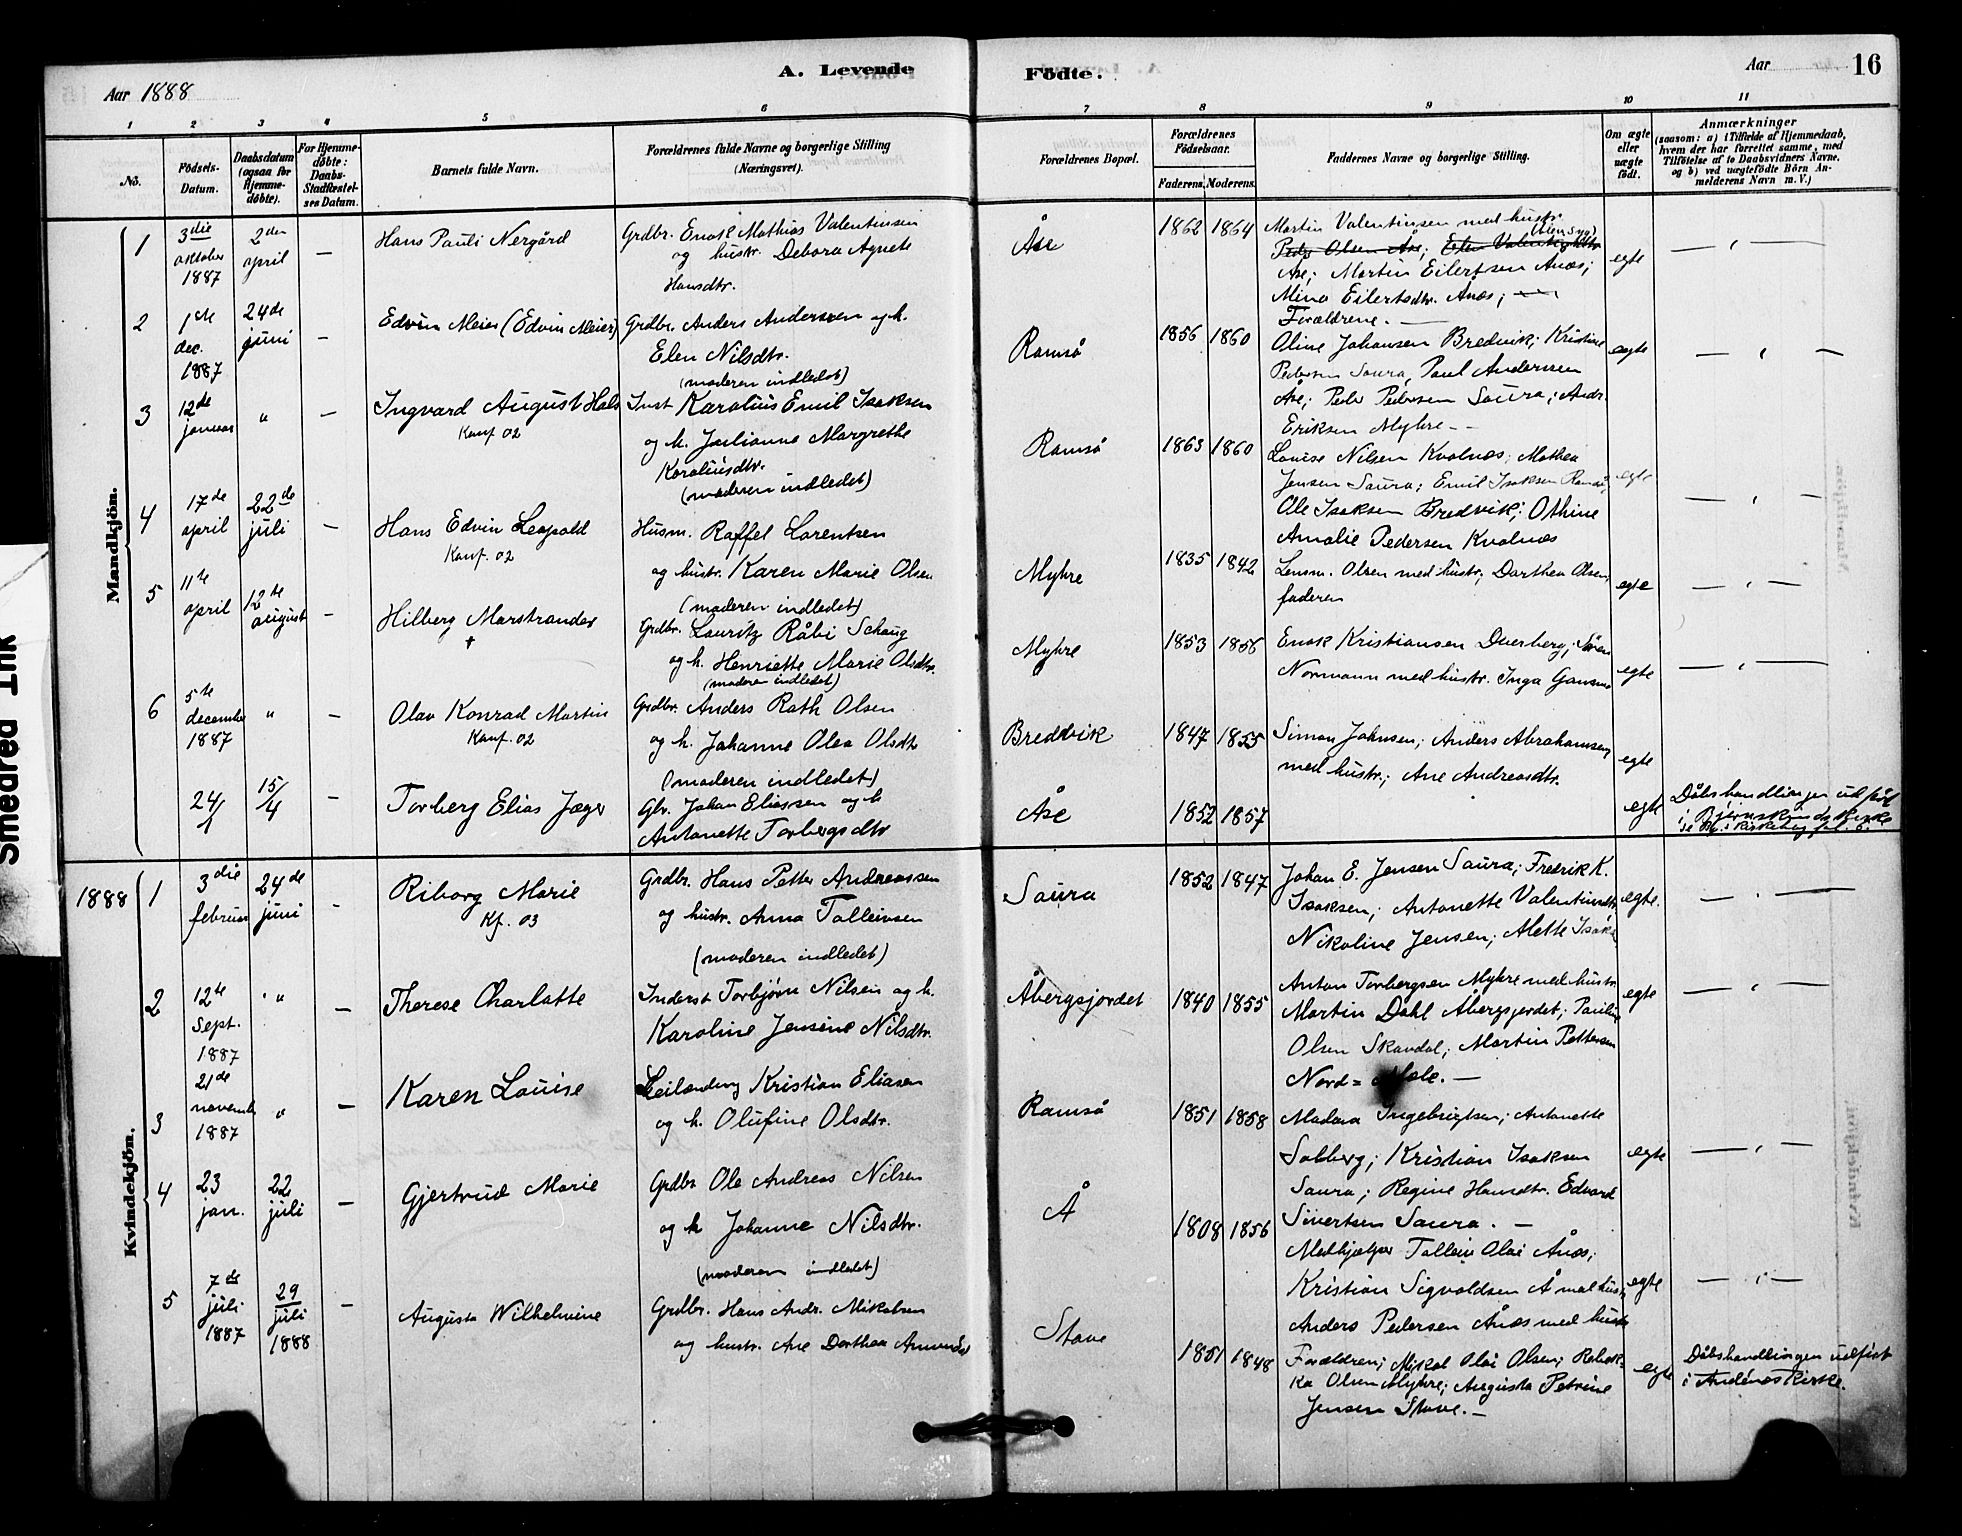 A. Levende
Födte.
Aar 1888
Aar
16
1
2
3
4
5
6
7
8
9
10
11
No.
Födsels-
Datum.
Daabsdatum
(ogsaa for
Hjemme-
døbte).
For Hjemme-
døbte:
Daabs-
Stadfæstel-
ses Datum.
Barnets fulde Navn.
Forældrenes fulde Navne og borgerlige Stilling
(Næringsvei).
Forældrenes Bopæl.
Forældrenes
Födselsaar.
Faderens.
Moderens.
Faddernes Navne og borgerlige Stilling.
Om ægte
eller
uægte
født.
Anmærkninger
(saasom: a) i Tilfælde af Hjemmedaab,
hvem der har forrettet samme, med
Tilföielse af to Daabsvidners Navne,
og b) ved uægtefödte Börn An-
melderens Navn m. V.)
Mandkjön.
1
3die
oktober
1887
2den
april
—
Hans Pauli Nergård
Grdbr. Enok Mathias Valentinsen
og hustr. Debora Agnete
Hansdtr.
Åse
1862
1864
Martin Valentinsen med hustr.
Peder Olsen Åse; Elen Valentinsdtr.
Åse; Martin Eilertsen Ånæs;
Mina Eilertsdtr. Ånæs; —
Forældrene. —
egte
— „ —
2
1ste
dec.
1887
24de
juni
—
Edvin Meier (Edvin Meier)
Grdbr. Anders Andersen og h.
Elen Nilsdtr.
(moderen indledet)
Ramså
1856
1860
Oline Johansen Bredvik; Kristine
Pedersen Saura, Paul Anderssen
Åse; Peder Pedersen Saura; Andr.
Eriksen Myhre - -
egte
— „ —
3
12de
januar
"
—
Ingvard August Hals
Konf. 02
Inst Karolius Emil Isaksen
og h. Julianne Margrethe
Karoliusdtr.
(moderen indledet)
Ramså
1863
1860
Louise Nilsen Kvalnæs; Mathea
Jensen Saura; Emil Isaksen Ramså;
Ole Isaksen Bredvik; Othine
Amalie Pedersen Kvalnæs
egte
— „ —
4
17de
april
22de
juli
—
Hans Edvin Leopold
Konf. 02
Husm. Raffel Lorentsen
og hustr. Karen Marie Olsen
(moderen indledet)
Myhre
1835
1842
Lensm. Olsen med hustr; Dorthea Olsen;
faderen
egte
— „ —
5
11te
april
12te
august
—
Hilberg Marstrander
†
Grdbr. Lauritz Råbi Schaug
og h. Henriette Marie Olsdtr.
(moderen indledet)
Myhre
1853
1856
Enok Kristiansen Dverberg; Sören
Normann med hustr. Inga
egte
— „ —
6
5te
december
1887
"
—
Olav Konrad Martin
Konf. 02
Grdbr. Anders Rath Olsen
og h. Johanne Olea Olsdtr
(moderen indledet)
Bredvik
1847
1855
Simon Johnsen; Anders Abrahamsen
med hustr.; Ane Andreasdtr.
egte
24/1
15/4
—
Torberg Elias Jæger
Gbr. Johan Eliassen og h
Antonette Torbergsdtr
Åse
1852
1857
egte
Dåbshandlingen udført
i Bjørnskinds Kirke
Kvindekjön.
1888
1
3die
februar
24de
juni
-
Riborg Marie
Kf. 03
Grdbr. Hans Petter Andreassen
og hustr. Anna Tolleivsen
(moderen indledet)
Saura
1852
1847
Johan E. Jensen Saura; Fredrik K.
Isaksen; Antonette Valentinsdtr.
Nikoline Jensen; Alette Isaks
egte.
— „ —
2
12te
Sept.
1887
"
—
Therese Charlotte
Inderst Torbjörn Nilsen og h.
Karoline Jensine Nilsdtr.
Åbergsjordet
1840
1855
Anton Torbergsen Myhre med hustr.
Martin Dahl Åbergsjordet; Pauline
Olsen Skavdal; Martin Pettersen
Nord= Mele. —
egte
— „ —
3
21de
novemb.
1887
"
—
Karen Louise
Leilænding Kristian Eliasen
og h. Olufine Olsdtr.
Ramså
1851
1858
Madara Ingebrigtsen; Antonette
Solberg; Kristian Isaksen
Saura; Regine Hansdtr. Edvard
Sivertsen Saura. —
egte
— „ —
4
23
jan.
22
juli
—
Gjertrud Marie
Grdbr Ole Andreas Nilsen
og h Johanne Nilsdtr.
(moderen indledet)
Å
1808
1856
Medhjælper Tollein Olai Ånæs;
Kristian Sigvaldsen Å med hustr
Anders Pedersen Ånæs med hustr
egte
— „ —
5
7de
juli
1887
29
juli
1888
—
Augusta Wilhelmine
Grdbr. Hans Andr. Mikalsen
og hustr. Ane Dorthea
Stave
1851
1848
Forældren; Mikal Olai Olsen; Rebek-
ka Olsen Myhre; Augusta Petrine
Jensen Stave. —
egte
Dåbshandlingen udført
i Andenæs Kirke.
Smedred Ink